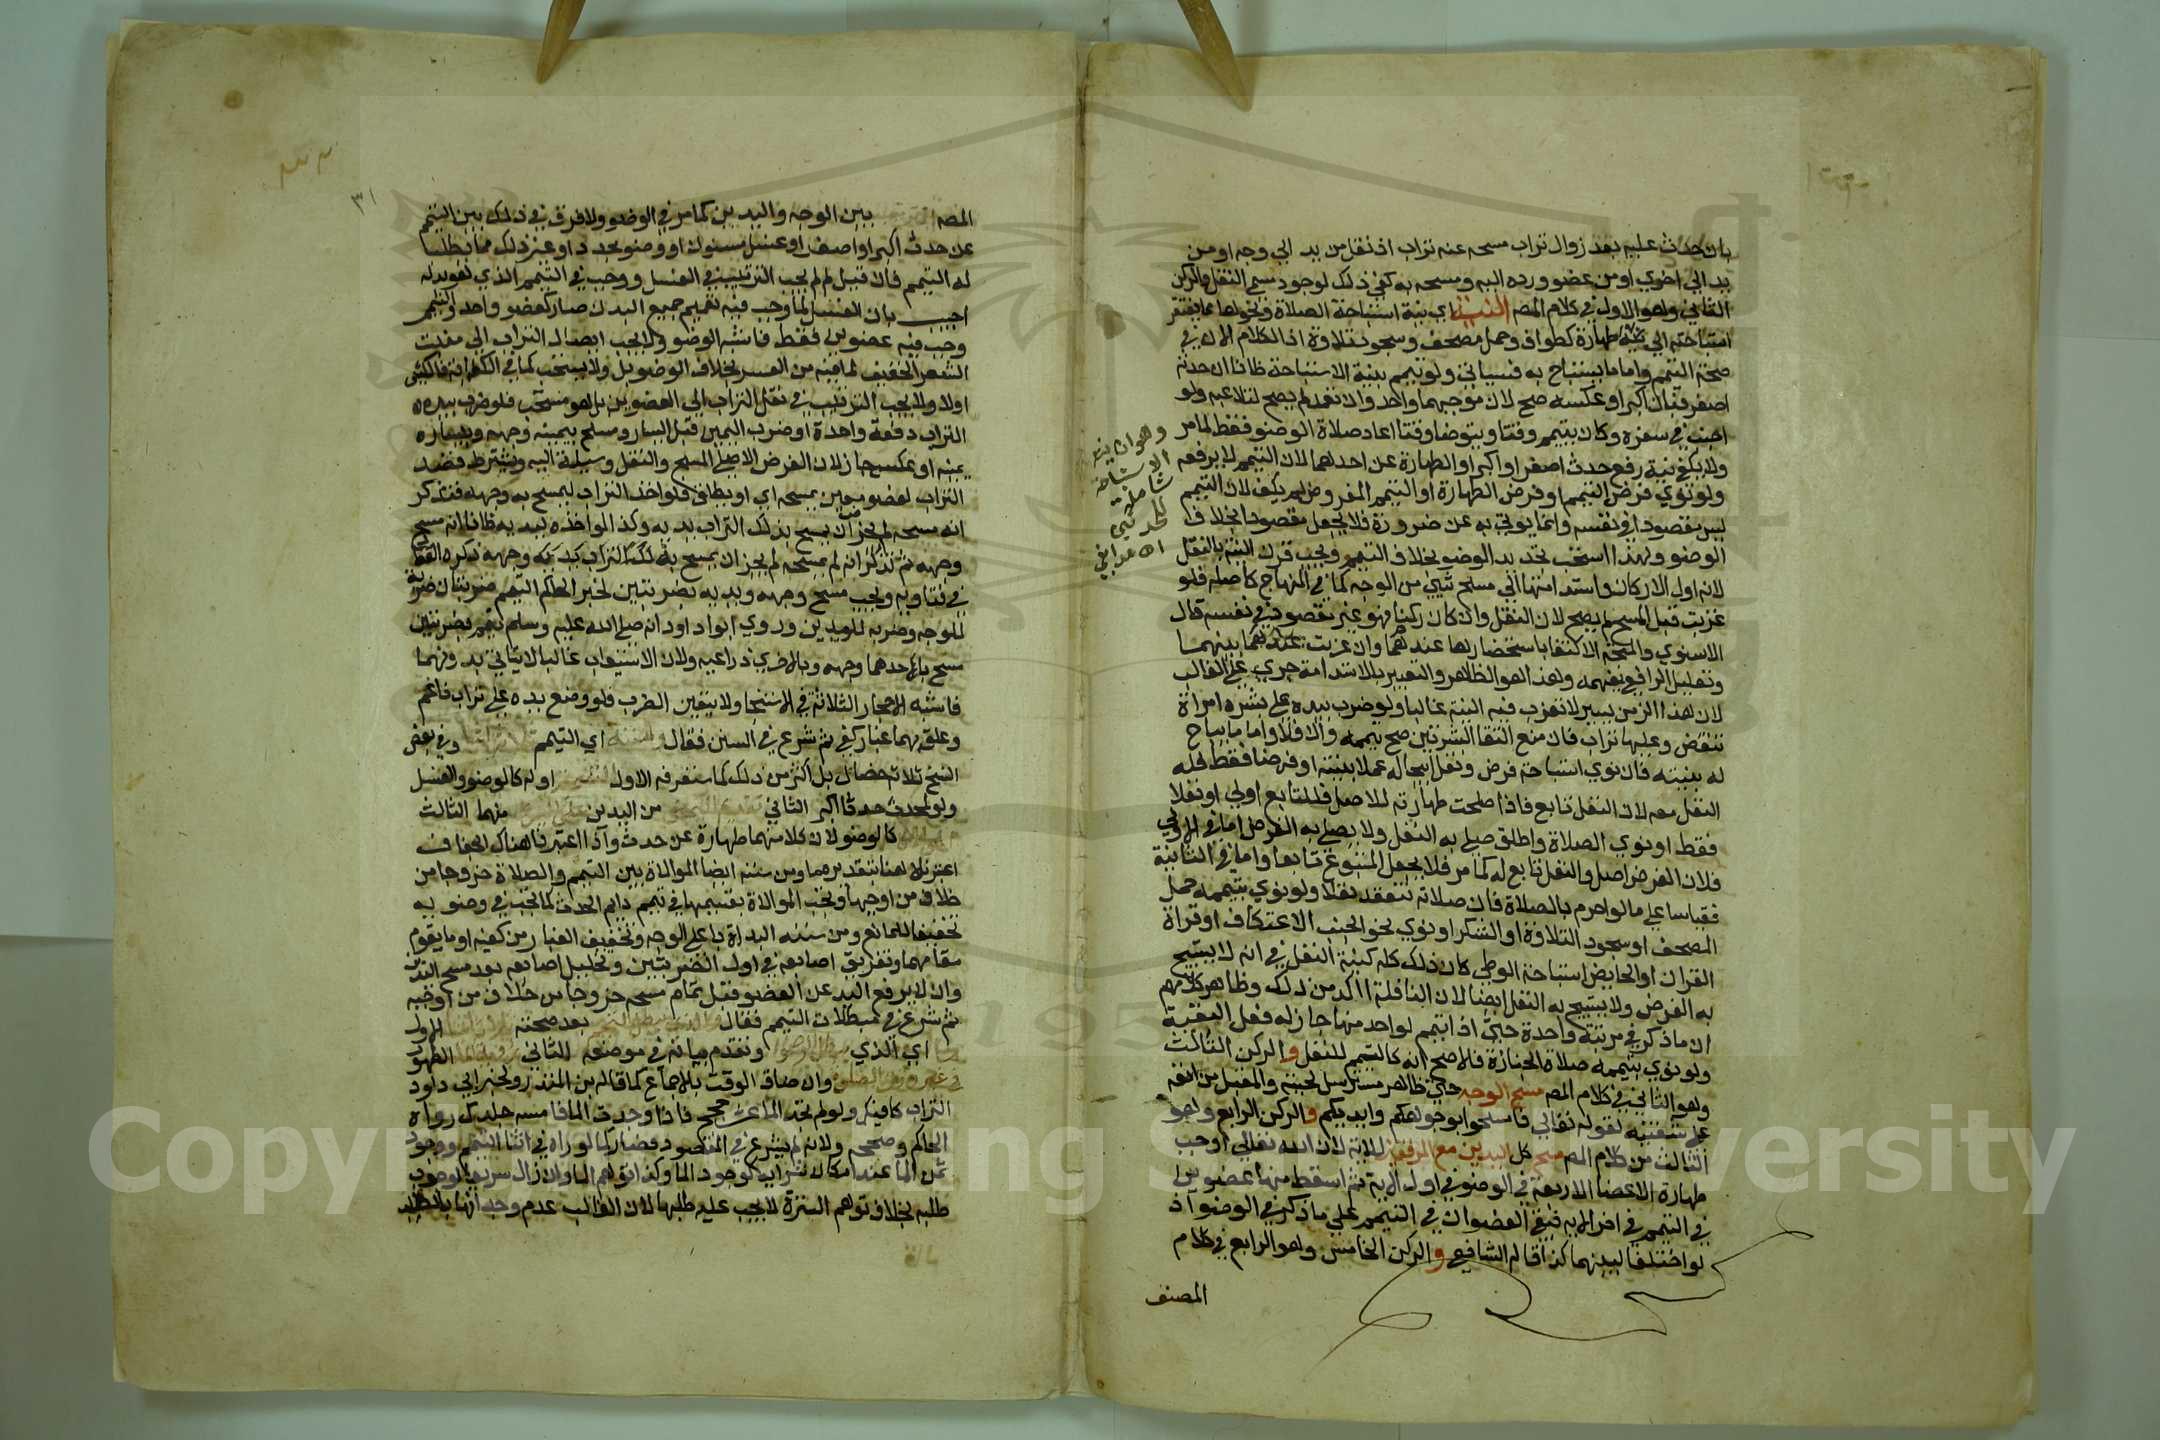 بان حدث عليه بعد زوال تراب مسحه عنه تراب اذ نقل من يد الى وجه او من
يد الى اخرى او من عضو ورده اليه ومسحه به كفى ذلك لوجود مسمى النقل والركن
الثاني وهو الاول في كلام المص النية اي نية استباحة الصلاة ونحوها مما يفتقر
استباحته الى طهارة كطواف وحمل مصحف وسجود تلاوة اذ الكلام الان في
صحة التيمم واما ما يستباح به فسياتي ولو تيمم بنية الاستباحة ظانا ان حدثه
اصغر فبان اكبر او عكسه صح لان موجبهما واحد وان تعمد لم يصح لتلاعبه ولو
اجنب في سفره وكان يتيمم وقتا ويتوضا وقتا اعاد صلاة الوضو فقط لما مر
ولا يكفي نية رفع حدث اصغر او اكبر او الطهارة عن احدهما لان التيمم لا يرفعه
ولو نوى فرض التيمم او فرض الطهارة او التيمم المفروض لم يكف لان التيمم
ليس مقصودا في نفسه وانما يوتى به عن ضرورة فلا يجعل مقصودا بخلاف
الوضو ولهذا استحب تجديد الوضو بخلاف التيمم ويجب قرن النية بالنقل
لانه اول الاركان واستدامتها الى مسح شيء من الوجه كما في المنهاج كاصله فلو
عزبت قبل المسح لم يصح لان النقل وان كان ركنا فهو غير مقصود في نفسه قال
الاسنوي والمتجه الاكتفا باستحضارها عندهما وان عزبت بينهما
وتعليل الرافعي يفهمه وهذا هو الظاهر والتعبير بالاستدامة جرى على الغالب
لان هذا الزمن يسير لا تعزب فيه النية غالبا ولو ضرب بيده على بشرة امراة
تنقض وعليها تراب فان منع التقا البشرتين صح تيممه والا فلا واما ما يباح
له بنيته فان نوى استباحة فرض ونفل ابيحا له عملا بنيته او فرضا فقط فله
النفل معه لان النفل تابع فاذا صلحت طهارته للاصل فللتابع اولى او نفلا
فقط او نوى الصلاة واطلق صلى به النفل ولا يصلى به الفرض اما في الاولى
فلان الفرض اصل والنفل تابع له كما مر فلا يجعل المتبوع تابعا واما في الثانية
فقياسا على ما لو احرم بالصلاة فان صلاته تنعقد نفلا ولو نوى بتيممه حمل
المصحف او سجود التلاوة او الشكر او نوى نحو الجنب الاعتكاف او قراة
القران او الحايض استباحة الوطي كان ذلك كله كنية النفل في انه لا يستبيح
به الفرض ولا يستبيح به النفل ايضا لان النافلة اكد من ذلك وظاهر كلامهم
ان ما ذكر في مرتبة واحدة حتى اذا تيمم لواحد منها جاز له فعل البقية
ولو نوى بتيممه صلاة الجنازة فالاصح انه كالتيمم للنفل و الركن الثالث
وهو الثاني في كلام المص مسح الوجه حتى ظاهر مسترسل لحيته والمقبل من انفه
على شفتيه لقوله تعالى فامسحوا بوجوهكم وايديكم و الركن الرابع وهو
الثالث من كلام المص مسح كل اليدين مع المرفقين للاية لان الله تعالى اوجب
طهارة الاعضا الاربعة في الوضو في اول الاية ثم اسقط منها عضوين
في التيمم في اخر الاية فبقي العضوان في التيمم على ما ذكر في الوضو اذ
لو اختلفا لبينهما كذا قاله الشافعي و الركن الخامس وهو الرابع في كلام
المصنف
وهو ان نية
الاستباحة
شاملة
للحدثين
٣١
المص بين الوجه واليدين كما مر في الوضو ولا فرق في ذلك بين التيمم
عن حدث اكبر او اصغر او غسل مسنون او وضو مجدد او غير ذلك مما يطلب
له التيمم فان قيل لم لم يجب الترتيب في الغسل ووجب في التيمم الذي هو بدله
اجيب بان الغسل لما وجب فيه تعميم جميع البدن صار كعضو واحد والتيمم
وجب فيه عضوين فقط فاشبه الوضو ولا يجب ايصال التراب الى منبت
الشعر الخفيف لما فيه من العسر بخلاف الوضو بل ولا يستحب كما في الكفاية فالكثيف
اولى ولا يجب الترتيب في نقل التراب الى العضوين بل هو مستحب فلو ضرب بيديه
التراب دفعة واحدة او ضرب اليمين قبل اليسار ومسح بيمينه وجهه وبيساره
يمينه او عكس جاز لان الفرض الاصلي المسح والنقل وسيلة اليه ويشترط قصد
التراب لعضو معين يمسحه اي او يطلق فلو اخذ التراب ليمسح به وجهه فتذكر
انه مسحه لم يجز ان يمسح بذلك التراب يديه وكذا لو اخذه ليديه ظانا انه مسح
وجهه ثم تذكر انه لم يمسحه لم يجز ان يمسح به وجهه ذكره القفال
في فتاويه ويجب مسح وجهه ويديه بضربتين لخبر الحاكم التيمم ضربتان ضربة
للوجه وضربة لليدين وروى ابو داود انه صلى الله عليه وسلم تيمم بضربتين
مسح باحدهما وجهه وبالاخرى ذراعيه ولان الاستيعاب غالبا لا يتاتى بدونهما
فاشبه الاحجار الثلاثة في الاستنجا ولا يتعين الضرب فلو وضع يده على تراب ناعم
وعلق بهما غبار كفى ثم شرع في السنن فقال وسننه اي التيمم وفي بعض
النسخ ثلاث خصال بل اكثر من ذلك كما ستعرفه الاول التسمية اوله كالوضو والغسل
ولو لمحدث حدثا اكبر الثاني تقديم اليمنى من اليدين على اليسرى منهما الثالث
كالوضو لان كلا منهما طهارة عن حدث واذا اعتبرنا هناك الجفاف
اعتبرناه هنا بتقديره ما ومن سننه ايضا الموالاة بين التيمم والصلاة خروجا من
خلاف من اوجبها وتجب الموالاة بقسميها في تيمم دايم الحدث كما تجب في وضويه
تخفيفا للمانع ومن سننه البداة باعلى الوجه وتخفيف الغبار من كفيه او ما يقوم
مقامهما وتفريق اصابعه في اول الضربتين وتخليل اصابعه بعد مسح اليدين
وان لا يرفع اليد عن العضو قبل تمام مسحه خروجا من خلاف من اوجبه
ثم شرع في مبطلات التيمم فقال والذي يبطل التيمم بعد صحته الاول
اي الذي يبطل الوضو وتقدم بيانه في موضعه الثاني الطهور
في غير وقت الصلاة وان ضاق الوقت بالاجماع كما قاله بن المنذر ولخبر ابي داود
التراب كافيك ولو لم تجد الما عشر حجج فاذا وجدت الما فامسه جلدك رواه
الحاكم وصححه ولانه لم يشرع في المقصود فصار كما لو راه في اثنا التيمم ووجود
ثمن الما عند امكان شرايه كوجود الما وكذا توهم الما وان زال سريعا لوجوب
طلبه بخلاف توهم السترة لا يجب عليه طلبها لان الغالب عدم وجدانها بالطلب